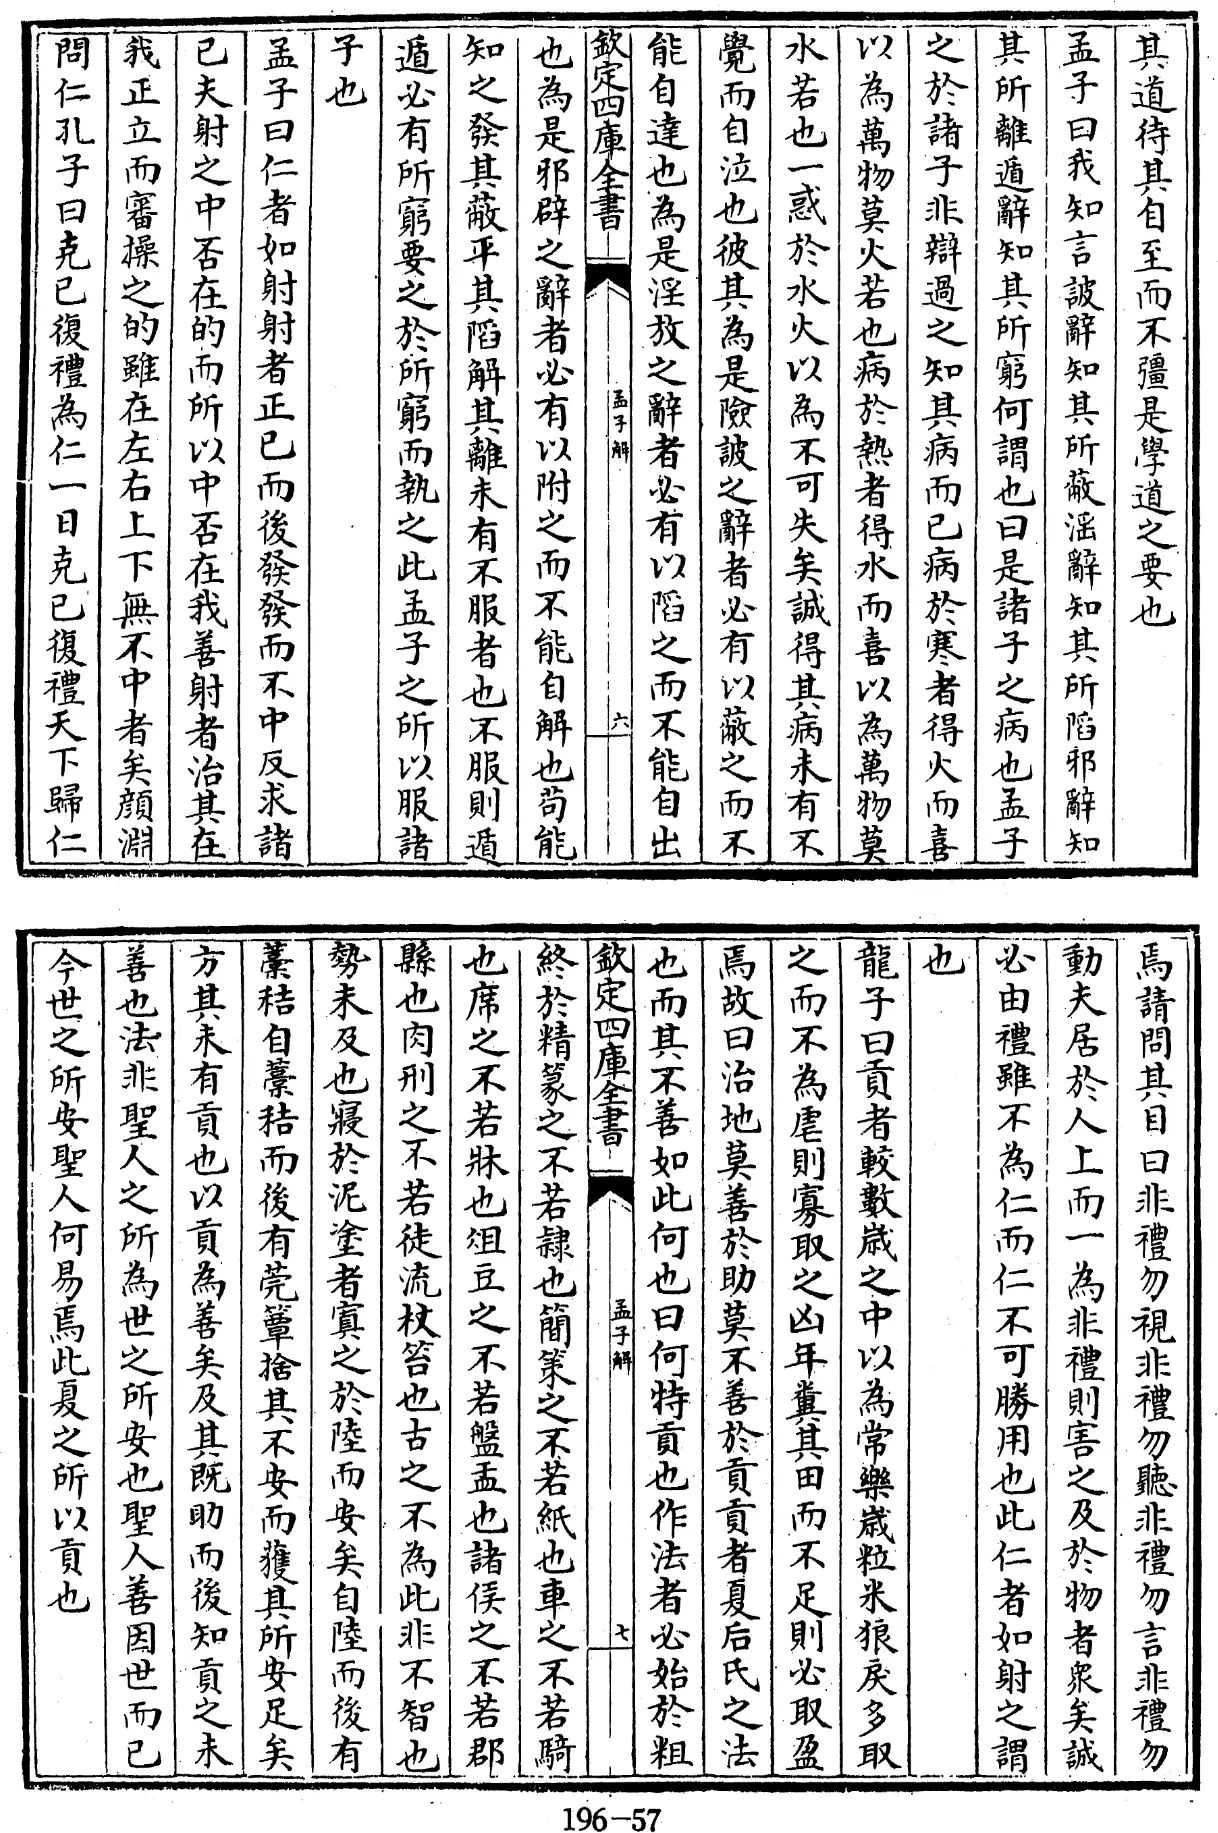 其道待其自至而不彊是學道之要也
孟子曰我知言詖辭知其所蔽淫辭知其所陷邪辭知
其所離遁辭知其所窮何謂也曰是諸子之病也孟子
之於諸子非辯過之知其病而已病於寒者得火而喜
以為萬物莫火若也病於熱者得水而喜以為萬物莫
水若也一惑於水火以為不可失矣誠得其病未有不
覺而自泣也彼其為是險詖之辭者必有以蔽之而不
能自達也為是淫放之辭者必有以陷之而不能自出
欽定四庫全書
孟子解
六
也為是邪辟之辭者必有以附之而不能自解也苟能
知之發其蔽平其陷解其離未有不服者也不服則遁
遁必有所窮要之於所窮而執之此孟子之所以服諸
子也
孟子曰仁者如射射者正已而後發發而不中反求諸
已夫射之中否在的而所以中否在我善射者治其在
我正立而審操之的雖在左右上下無不中者矣顔淵
問仁孔子曰克已復禮為仁一日克已復禮天下歸仁
焉請問其目曰非禮勿視非禮勿聽非禮勿言非禮勿
動夫居於人上而一為非禮則害之及於物者衆矣誠
必由禮雖不為仁而仁不可勝用也此仁者如射之謂
也
龍子曰貢者較數歲之中以為常樂歲粒米狼戾多取
之而不為虐則寡取之凶年糞其田而不足則必取盈
焉故曰治地莫善於助莫不善於貢貢者夏后氏之法
也而其不善如此何也曰何特貢也作法者必始於粗
欽定四庫全書
孟子解
七
終於精篆之不若隷也簡策之不若紙也車之不若騎
也席之不若牀也俎豆之不若盤盂也諸侯之不若郡
縣也肉刑之不若徒流杖笞也古之不為此非不智也
勢未及也寢於泥塗者寘之於陸而安矣自陸而後有
藁秸自藁秸而後有莞簟捨其不安而獲其所安足矣
方其未有貢也以貢為善矣及其既助而後知貢之未
善也法非聖人之所為世之所安也聖人善因世而已
今世之所安聖人何易焉此夏之所以貢也
196-57